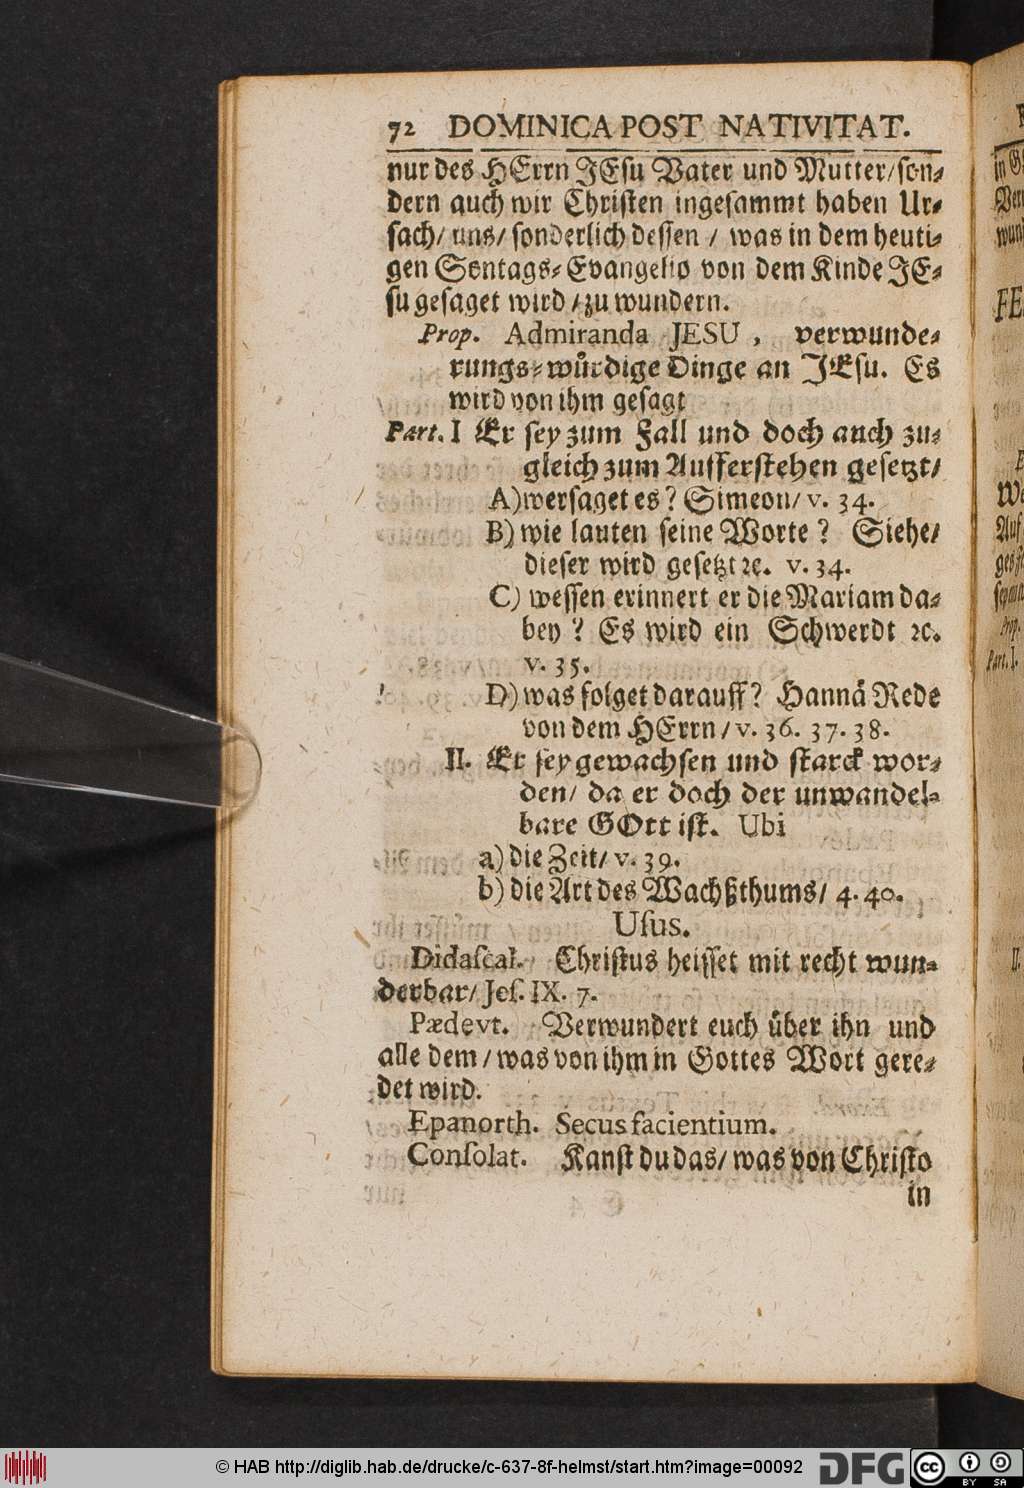 72 DOMINICA POST NATIVITAT.
nur des HErrn JEsu Vater und Mutter/ son⸗
dern auch wir Christen ingesammt haben Ur⸗
sach/ uns/ sonderlich dessen / was in dem heuti⸗
gen Sontags⸗Evangelio von dem Kinde JE⸗
su gesaget wird / zu wundern.
Prop. Admiranda JESU , verwunde⸗
rungs⸗wuͤrdige Dinge an JEsu. Es
wird von ihm gesagt
Part. I Er sey zum Fall und doch auch zu⸗
gleich zum Aufferstehen gesetzt/
A) wer saget es? Simeon/ v. 34.
B) wie lauten seine Worte? Siehe/
dieser wird gesetzt ꝛc. v. 34.
C) wessen erinnert er die Mariam da⸗
bey? Es wird ein Schwerdt ꝛc.
v. 35.
D) was folget darauff? Hannaͤ Rede
von dem HErrn / v. 36. 37. 38.
II. Er sey gewachsen und starck wor⸗
den/ da er doch der unwandel⸗
bare GOtt ist. Ubi
a) die Zeit/ v. 39.
b) die Art des Wachßthums/ 4. 40.
Uſus.
Didaſcal. Christus heisset mit recht wun⸗
derbar/ Jeſ. IX. 7.
Pædevt. Verwundert euch uͤber ihn und
alle dem / was von ihm in Gottes Wort gere⸗
det wird.
Epanorth. Secus facientium.
Conſolat. Kanst du das/ was von Christo
in
© HAB http://diglib.hab.de/drucke/c-637-8f-helmst/start.htm?image=00092
DFG
cc BY SA